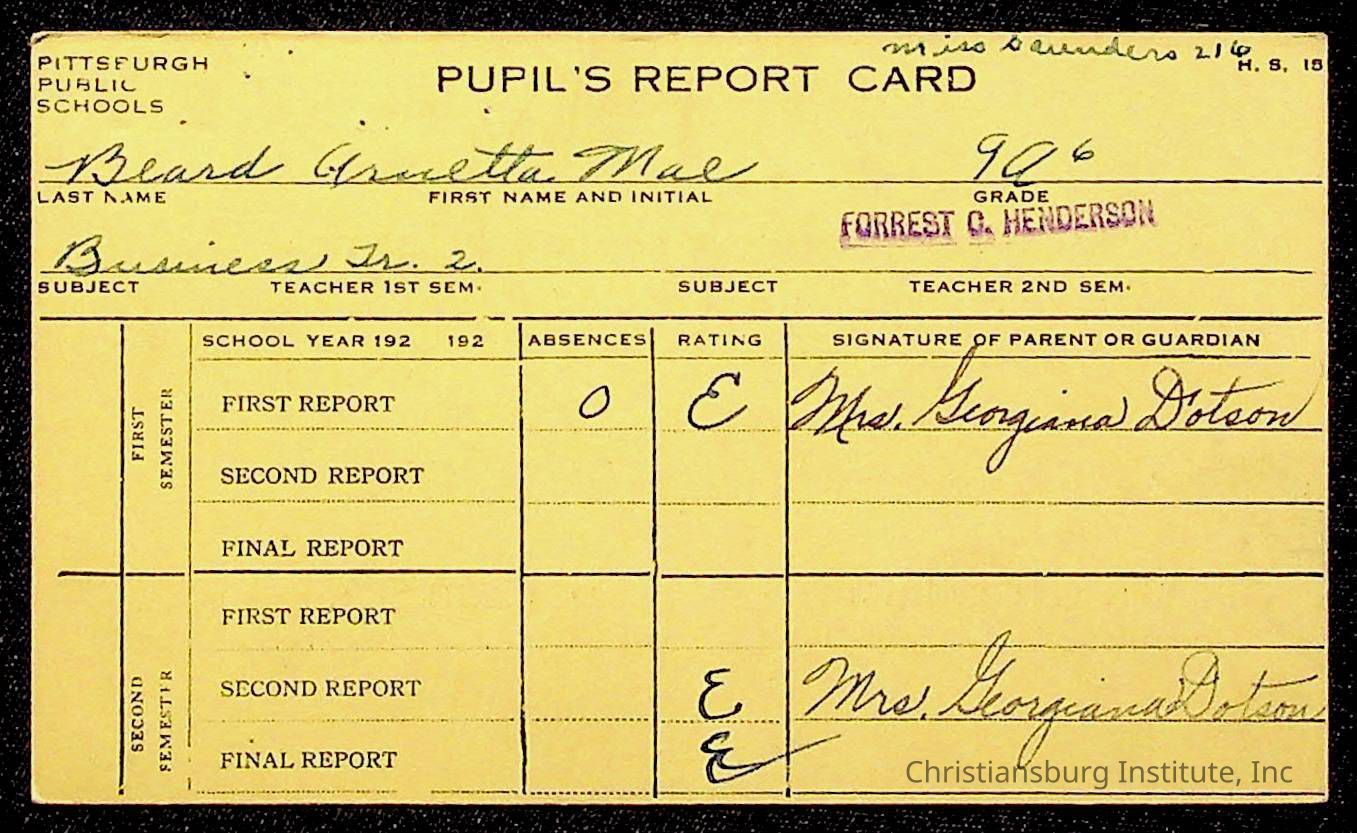 Miss Saunders 216
H. S. 15
PITTSBURGH
PUBLIC
SCHOOLS
PUPIL'S REPORT CARD
Beard Mae 9A6
LAST NAME FIRST NAME AND INITIAL GRADE
FORREST G. HENDERSON
Business Tr. 2.
SUBJECT TEACHER 1ST SEM. SUBJECT TEACHER 2ND SEM.
SCHOOL YEAR 192 192 ABSENCES RATING SIGNATURE OF PARENT OR GUARDIAN
FIRST SEMESTER
FIRST REPORT 0 E Mrs. Georgiana Dotson
SECOND REPORT
FINAL REPORT
SECOND SEMESTER
FIRST REPORT
SECOND REPORT E Mrs. Georgiana Dotson
FINAL REPORT E
Christiansburg Institute, Inc